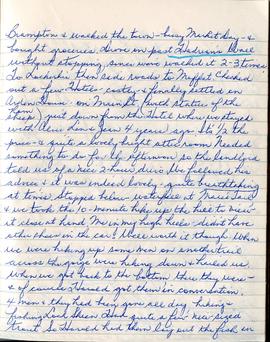 Brampton & walked the town - busy Market Day - &
bought groceries. Drove on past Hadrian's Wall
without stopping, since were worked at 2-3 times.
To Lockerbie then side roads to Moffat. Checked
out a few Hotels - costly & finally settled on
on Main St. (with statue of the
Ram) just down from the Hotel where we stayed
with & Jean 4 years ago. It's 1/2 the
price - & quite a lovely bright attic room. Needed
something to do for by afternoon so the landlord
told us of a nice 2-hour drive. We followed his
advice & it was indeed lovely - quite breathtaking
at times. Stopped below waterfall at Mare's Tail
& we took the 10-minute hike up the hill to view
it closer at hand. Me in my high heels - didn't have
other shoes in the car. Was worth it though. When
we were hiking up some men on another trail
across the gorge were hiking down & hailed us.
When we got back to the bottom they they were -
& of course Harold got them in conversation.
4 men & they had been gone all day - hiking &
fishing Loch Skeen. Had quite a few - nice-sized
trout. So Harold had them lay out the fish on